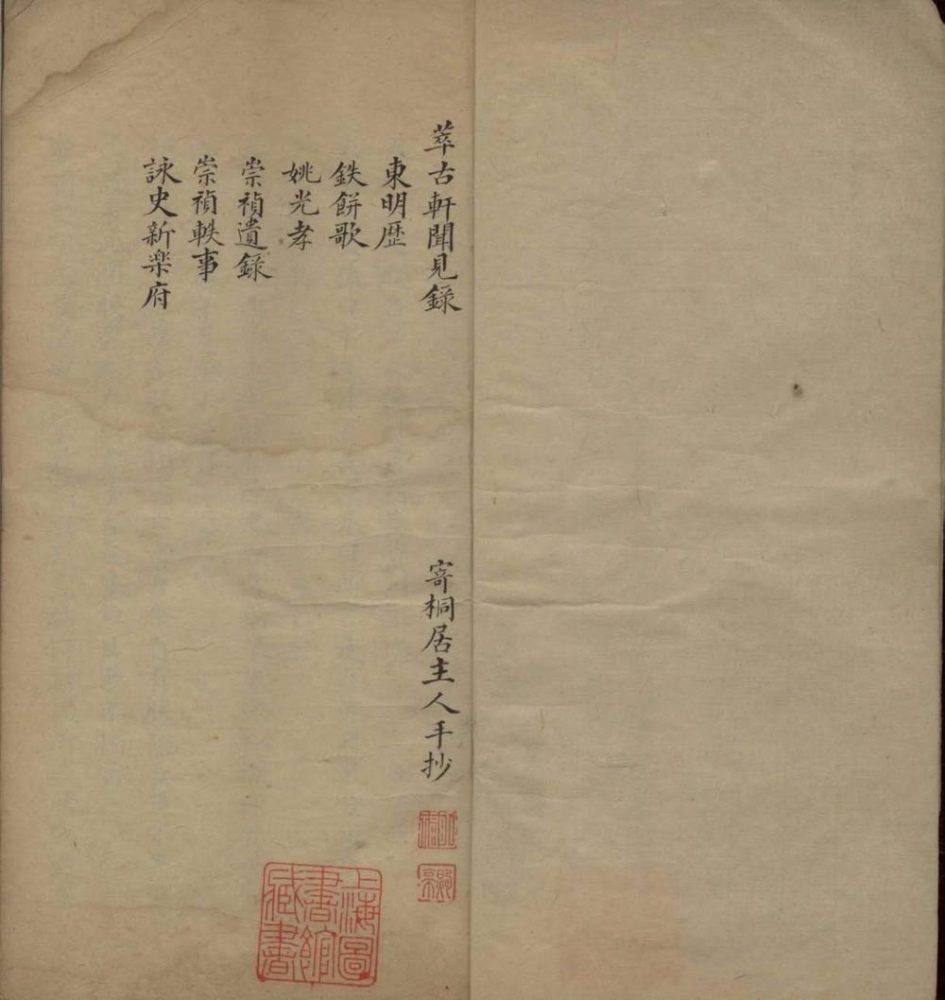 萃古軒聞見錄
寄桐居主人手抄
東明歴
鉄餅歌
姚光孝
崇禎遺錄
崇禎軼事
詠史新楽府
上海圖書館藏書